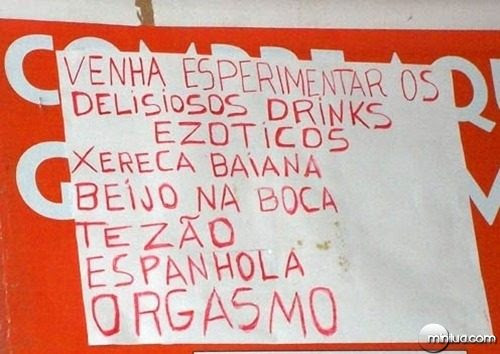 VENHA ESPERIMENTAR OS
DELISIOSOS DRINKS
EZOTICOS
XERECA BAIANA
BEIJO NA BOCA
TEZÃO
ESPANHOLA
ORGASMO
mniua.com